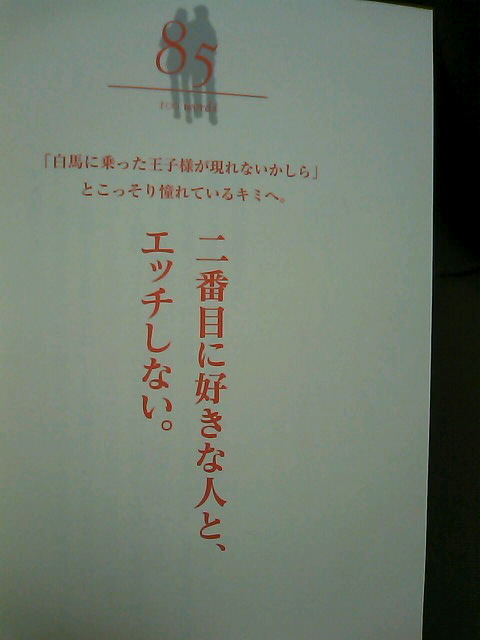 85
「白馬に乗った王子様が現れないかしら」
とこっそり憧れているキミへ。
二番目に好きな人と、
エッチしない。